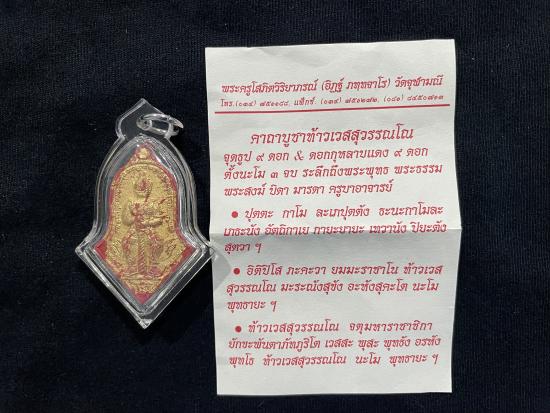 พระครูโสภิตวิริยาภรณ์ (อิฏฐ์ ภทฺทจาโร) วัดจุฬามณี
โทร.(๐๓๔) ๗๕๑๑๘๘, แฟ็กซ์. (๐๓๔) ๗๕๑๒๗๒, (๐๘๑) ๘๔๕๐๗๑๓
คาถาบูชาท้าวเวสสุวรรณโณ
จุดธูป ๙ ดอก & ดอกกุหลาบแดง ๙ ดอก
ตั้งนะโม ๓ จบ ระลึกถึงพระพุทธ พระธรรม
พระสงฆ์ บิดา มารดา ครูบาอาจารย์
● ปุตตะ กาโม ละเภปุตตัง ธะนะกาโมละ
เภธะนัง อัตถิกาเย กายะยายะ เทวานัง ปิยะตัง
สุตวา ฯ
● อิติปิโส ภะคะวา ยมมะราชาโน ท้าวเวส
สุวรรณโณ มะระณังสุขัง อะหังสุคะโต นะโม
พุทธายะ ฯ
● ท้าวเวสสุวรรณโณ จตุมหาราชาชิกา
ยักขะพันตาภัทภูริโต เวสสะ พุสะ พุทธัง อรหัง
พุทโธ ท้าวเวสสุวรรณโณ นะโม พุทธายะ ฯ